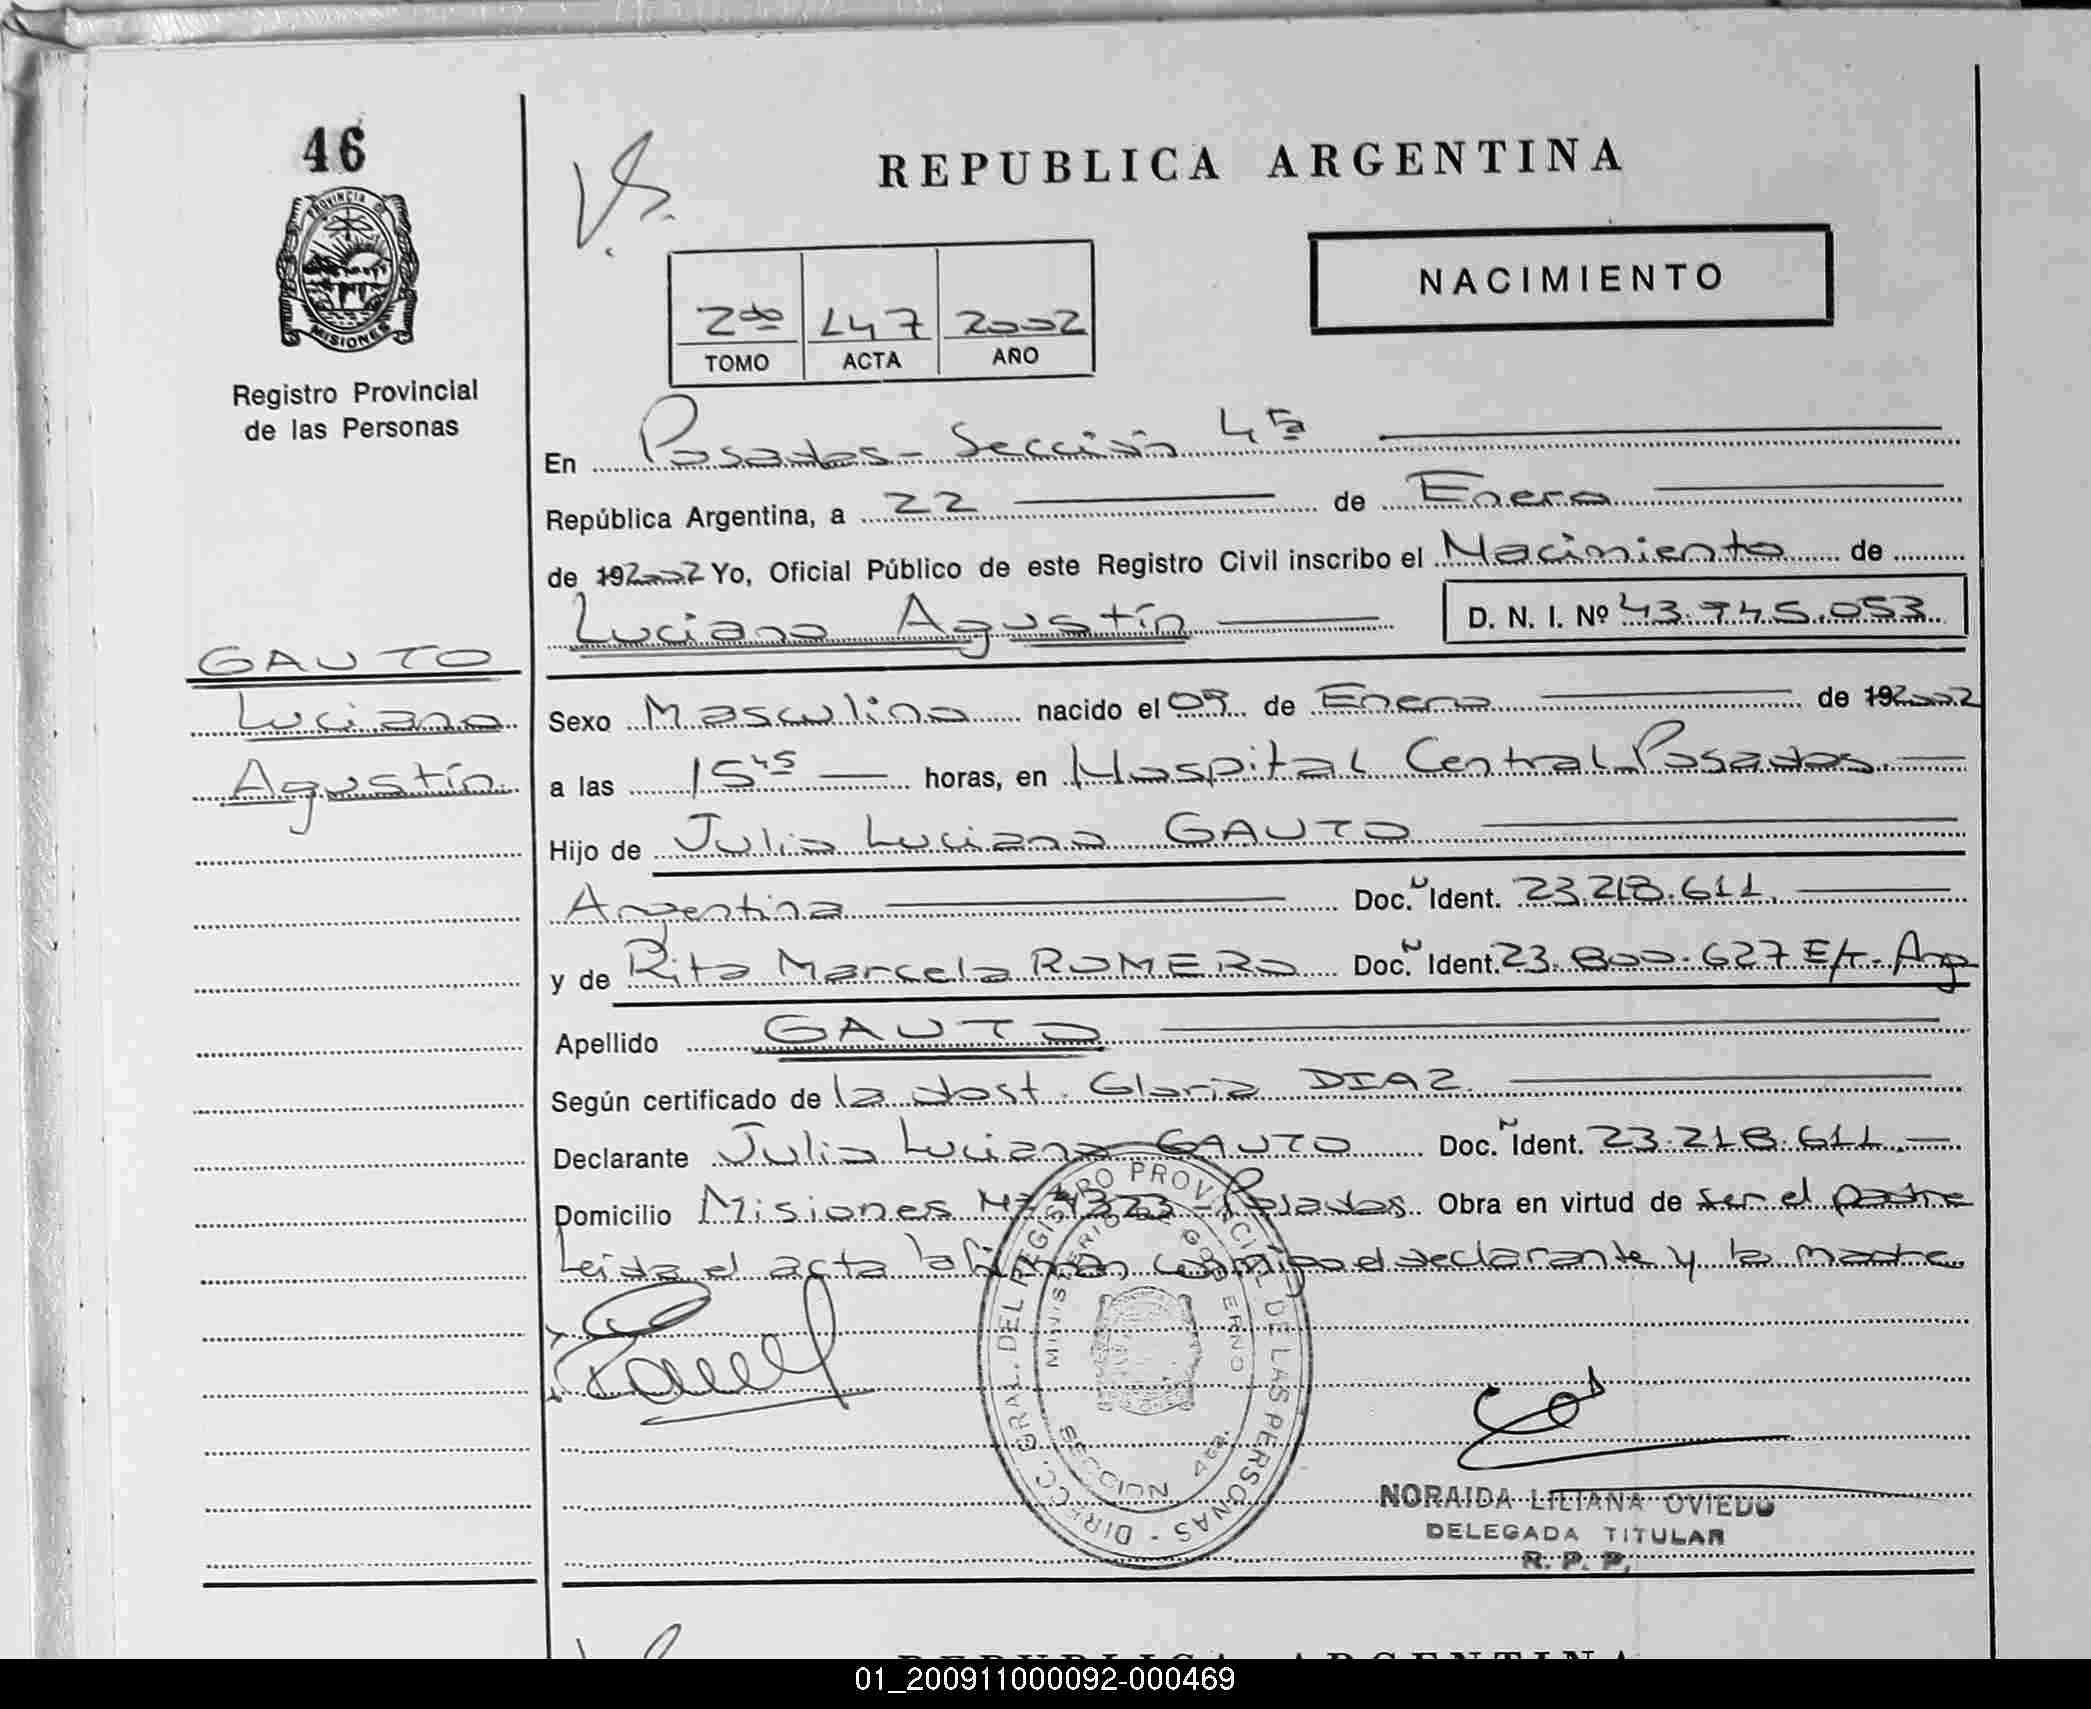 46
PROVINCIA DE
MISIONES
Registro Provincial
de las Personas
REPUBLICA ARGENTINA
NACIMIENTO
2do 247 2002
TOMO ACTA AÑO
En Posadas - Sección 4ta
República Argentina, a 22 de Enero
de 192002 Yo, Oficial Público de este Registro Civil inscribo el Nacimiento de
Luciano Agustín D. N. I. Nº 43.745.053
GAUTO
Luciano
Agustín
Sexo Masculino nacido el 09 de Enero de 192002
a las 15 45 horas, en Hospital Central Posadas.
Hijo de Julio Luciano GAUTO
Argentina Doc. N Ident. 23.218.611.
y de Rita Marcela ROMERO Doc. N Ident. 23.800.627 E/T. Arg
Apellido GAUTO
Según certificado de la obst. Gloria DIAZ.
Declarante Julio Luciano GAUTO Doc. N Ident. 23.218.611.
Domicilio Misiones Nº 4323 - Posadas. Obra en virtud de ser el padre
Leida el acta la firman conmigo el declarante y la madre
DIRECC. GRAL. DEL REGISTRO PROVINCIAL DE LAS PERSONAS -
MINISTERIO DE GOBIERNO
SECCION 4ta.
NORAIDA LILIANA OVIEDO
DELEGADA TITULAR
R. P. P.
REPUBLICA ARGENTINA
01_200911000092-000469